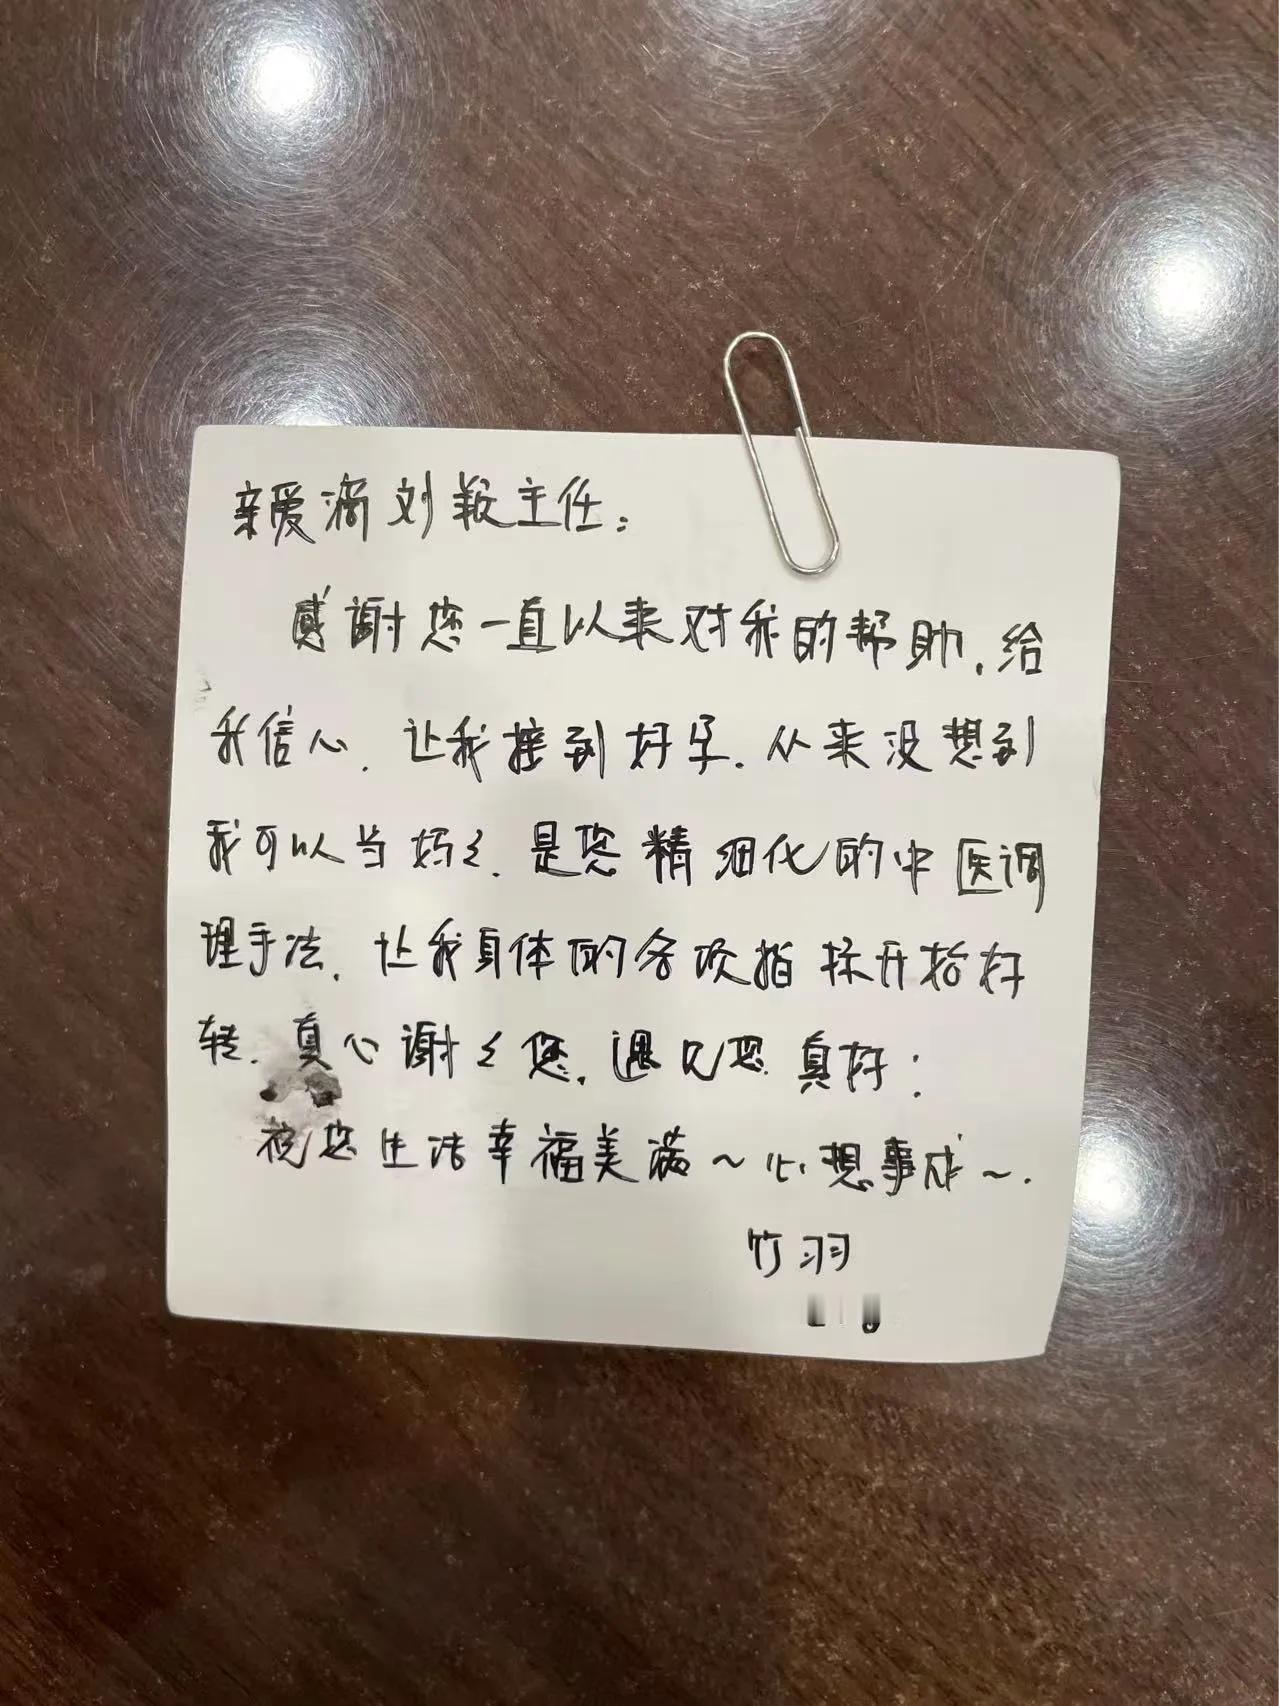 亲爱滴刘毅主任:
感谢您一直以来对我的帮助,给
我信心,让我接到好孕.从来没想到
我可以当妈々.是您精细化的中医调
理手法,让我身体的各项指标开始好
转.真心谢々您,遇见您真好:
祝您生活幸福美满~心想事成~.
竹羽